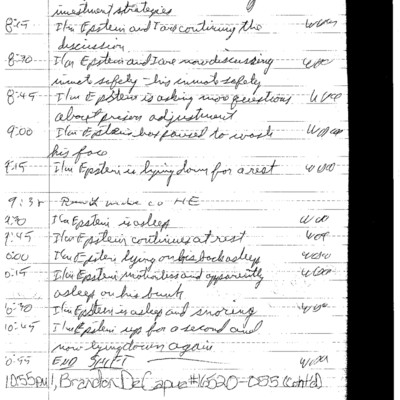 investment strategies
8:15 I/m Epstein and I are continuing the
discussion
8:30 I/m Epstein and I are now discussing
inmate safety - his inmate safety
8:45 I/m Epstein is asking more questions
about prison adjustment
9:00 I/m Epstein has paused to wash
his face
9:15 I/m Epstein is lying down for a rest
9:30
9:30 I/m Epstein is asleep
9:45 I/m Epstein continues at rest
10:00 I/m Epstein lying on his back asleep
10:15 I/m Epstein motionless and apparently
asleep on his bunk
10:30 I/m Epstein is asleep and snoring
10:45 I/m Epstein up for a second and
now lying down again
END SHIFT
10:55pm I, Brandon DeCapua #16520-055 (cont'd)